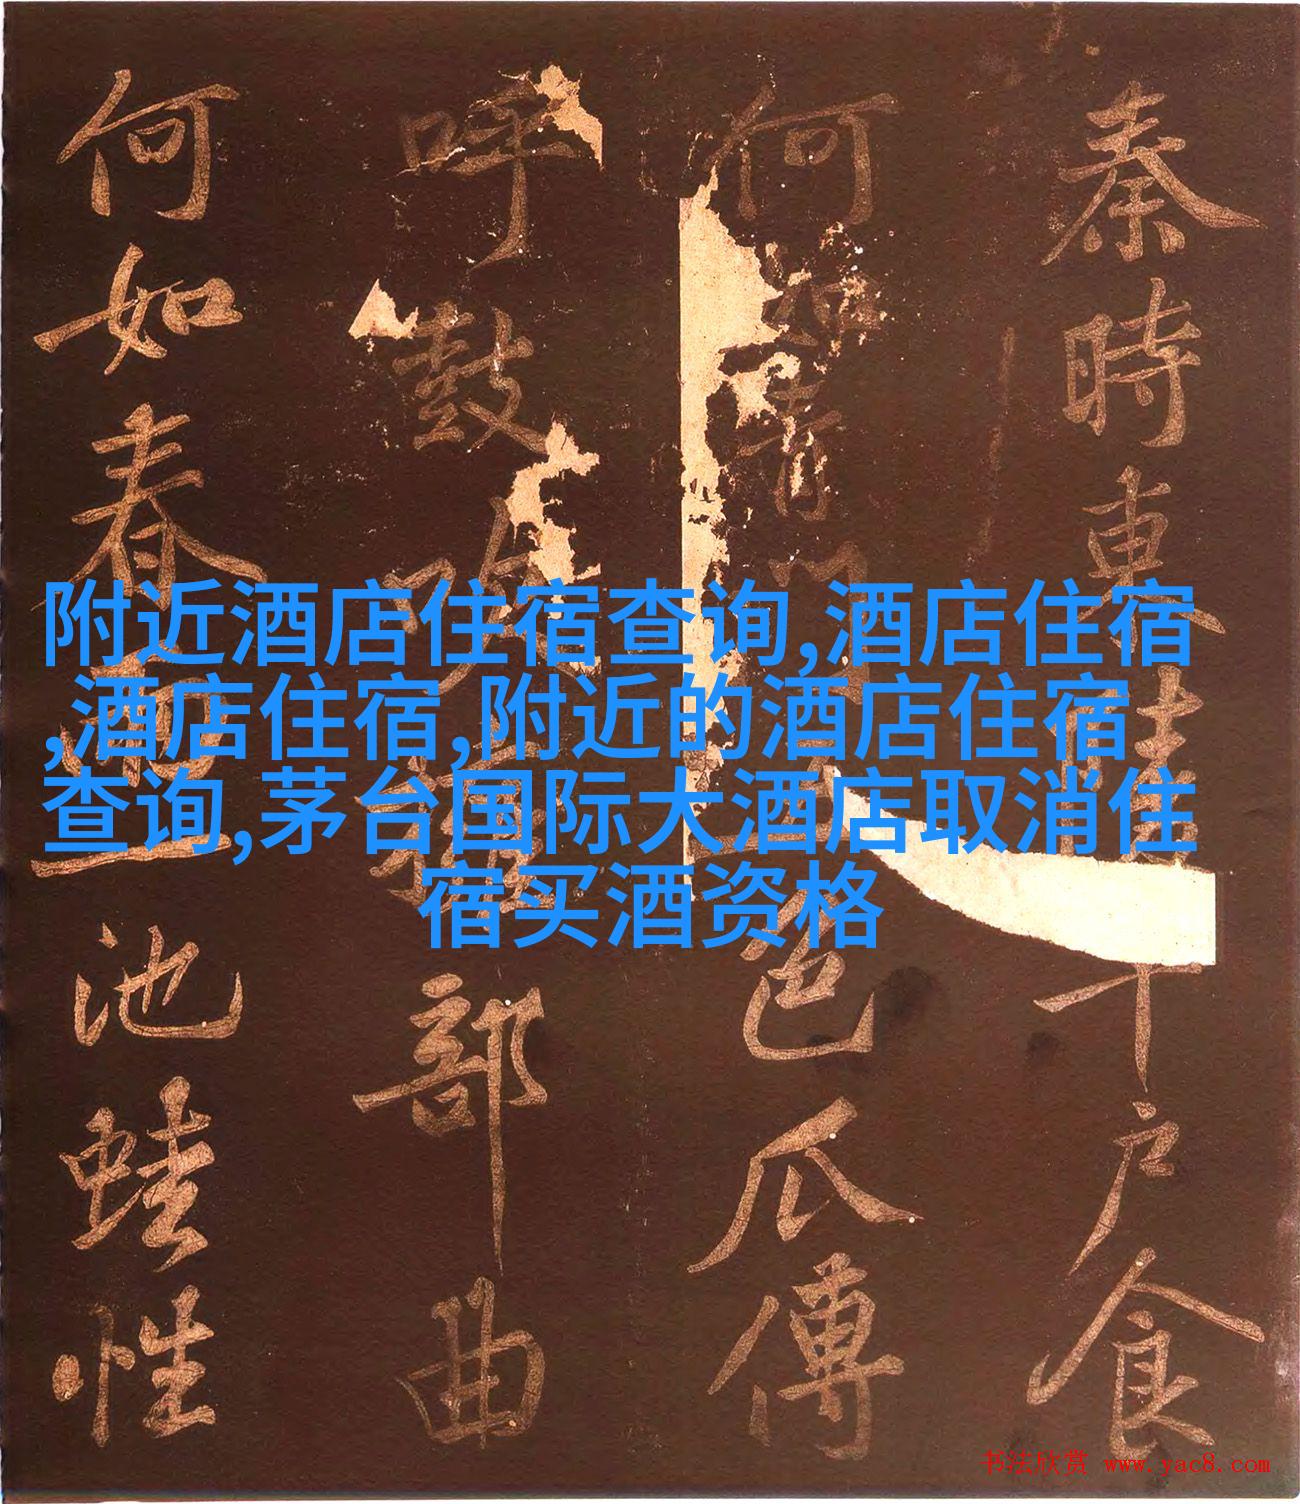 秦時東陵千戶食
何如青門五色瓜傅
呼鼓吹兩部曲
何如春雨一池蛙性
附近酒店住宿查询,酒店住宿
,酒店住宿,附近的酒店住宿
查询,茅台国际大酒店取消住
宿买酒资格
书法欣赏 www.yac8.com